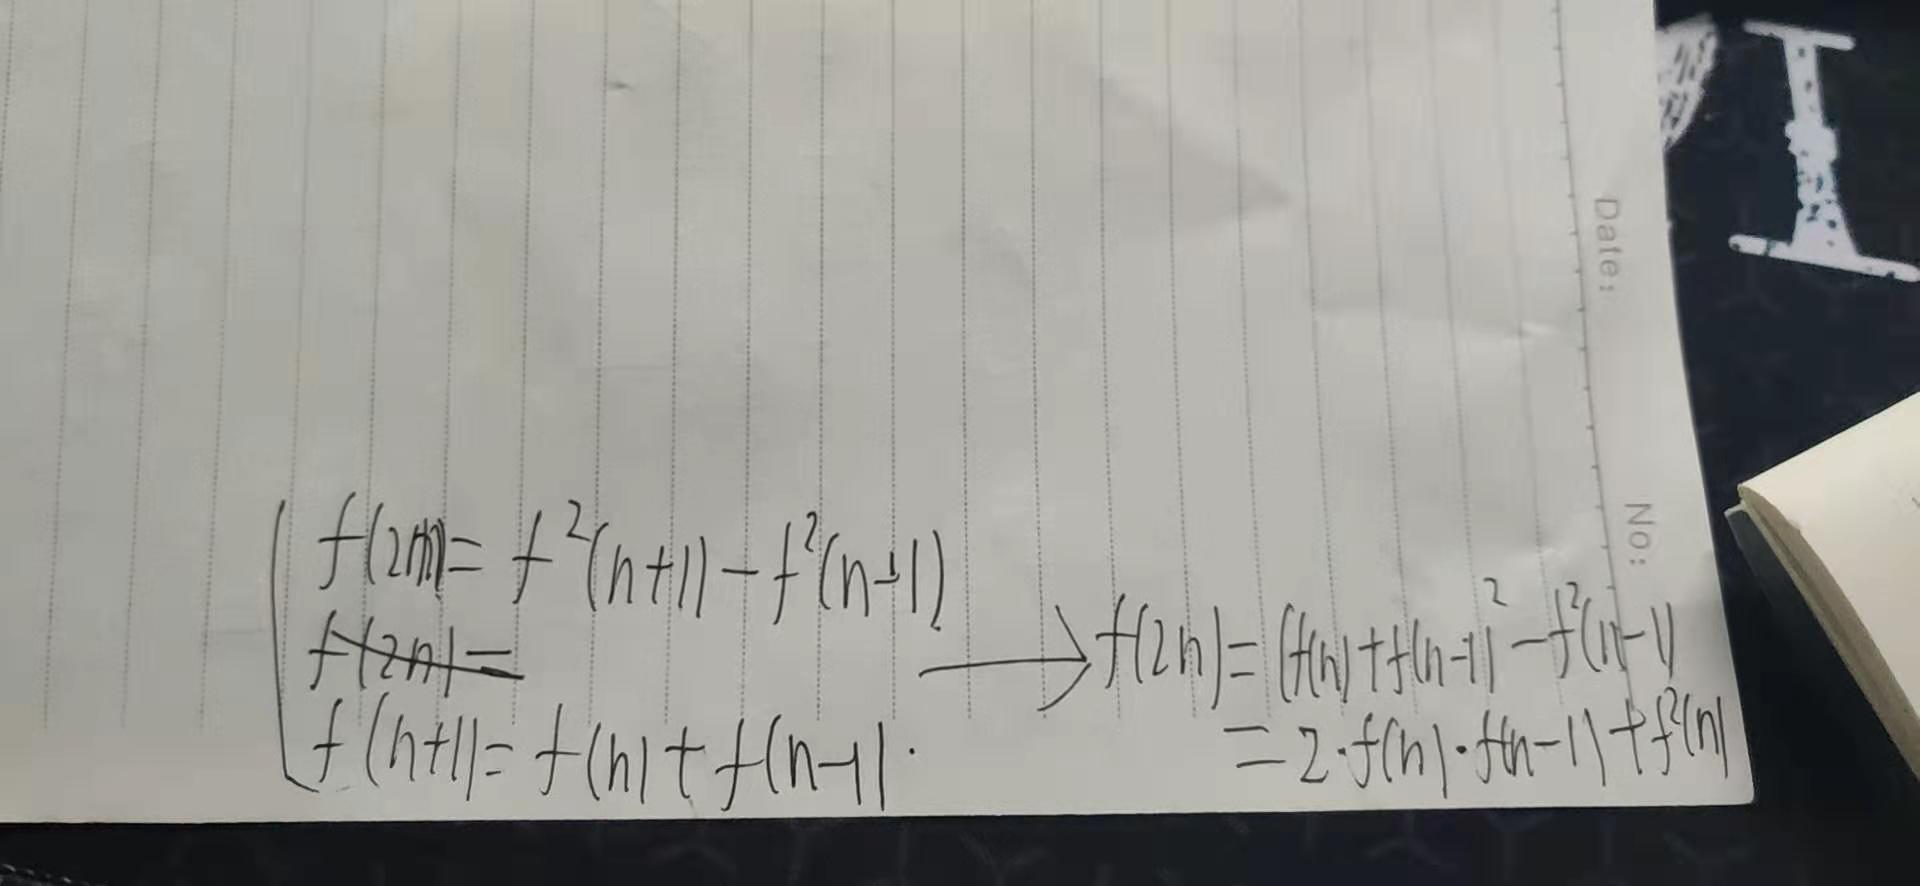 Date:
No:
f(2n) = f²(n+1) - f²(n-1)
f(2n) =
f(n+1) = f(n) + f(n-1).
f(2n) = (f(n)+f(n-1))² - f²(n-1)
= 2·f(n)·f(n-1) + f²(n)